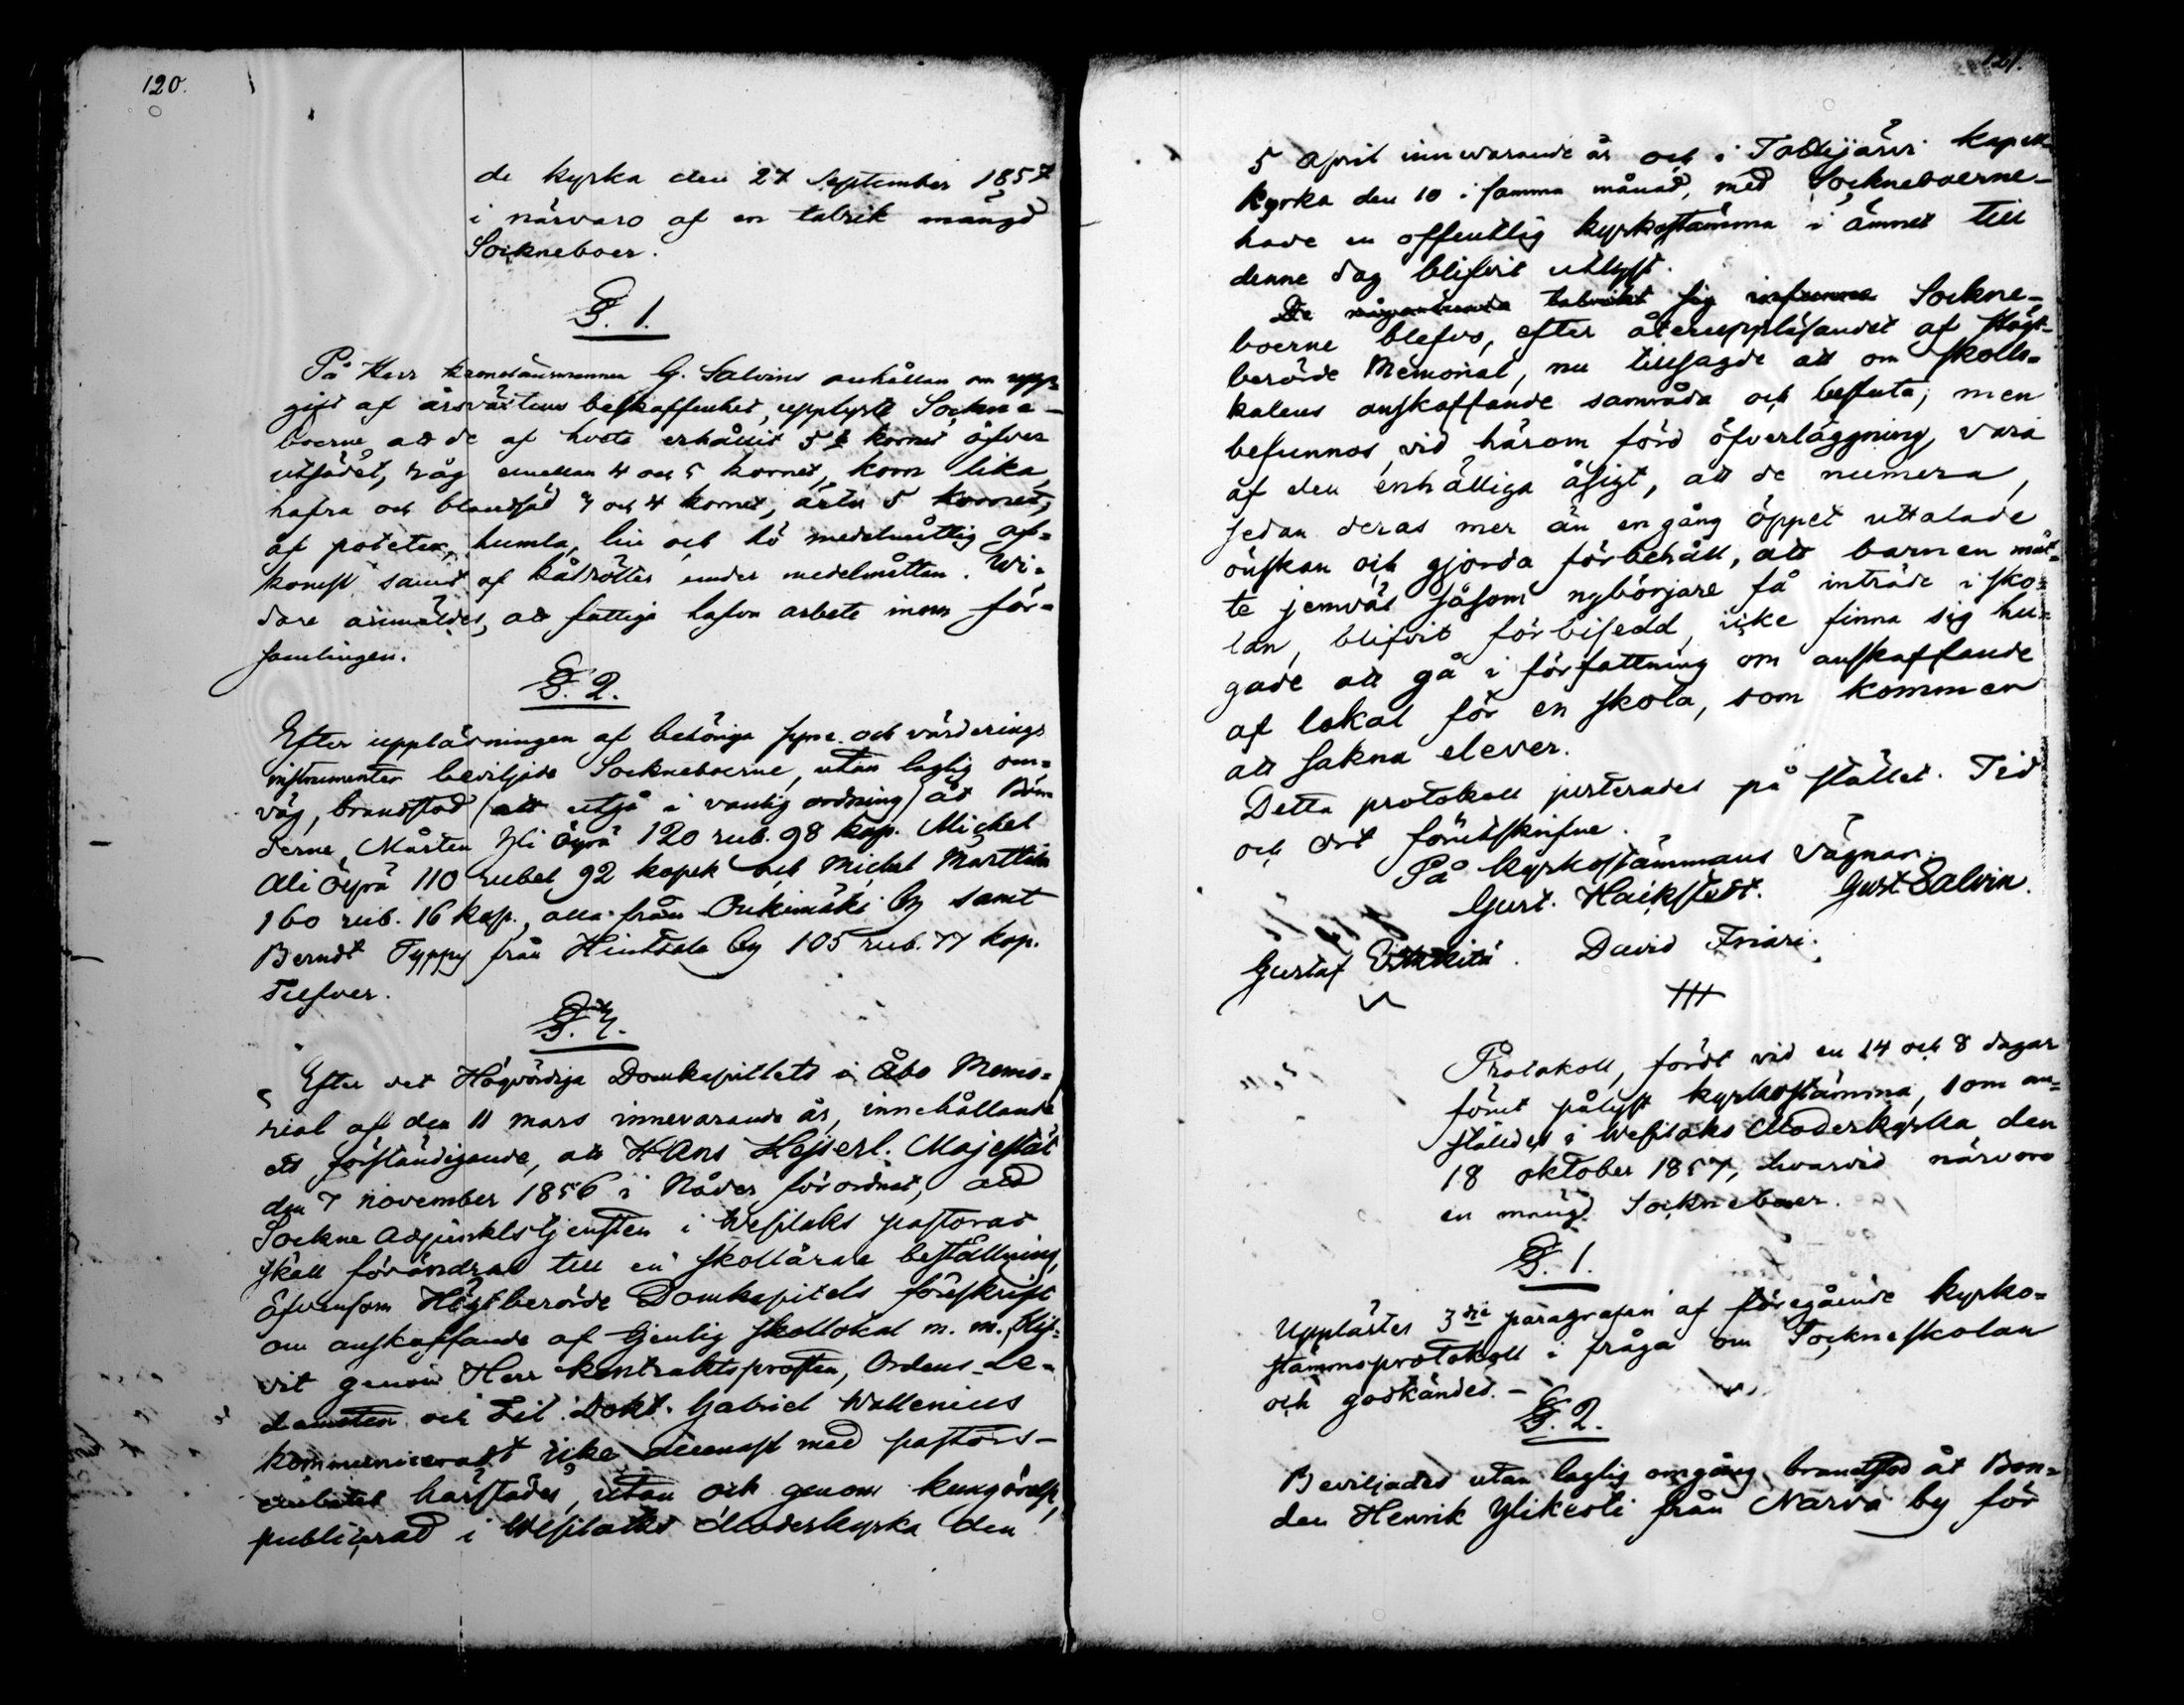 120.
de kyrka den 27 September 1857
i närvaro af en talrik mängd
Sockneboer.
§. 1.
På Herr Kronolänsmannen G. Salvins anhållan om upp=
gift af årsväxtens beskaffenhet, upplyste Sockne-
boerne att de af hvete erhållit 5 kornet öfver
utsädet, råg emellan 4 och 5 kornet, korn lika,
hafra och blandsäd 3 och 4 kornet, ärter 5 kornet,
af poteter, humla, lin och hö medelmåttig af=
komst samt af kålrötter under medelmåttan. Vi=
dare anmäldes, att fattiga hafva arbete inom för=
samlingen.
§. 2.
Efter uppläsningen af behöriga syne och värderings
instrumenter beviljade Sockneboerne, utan laglig om=
väg, brandstod (att utgå i vanlig ordning) åt Bön
derne, Mårten Yli Äyrä 120 rub. 98 kop. Michel
Ali Äyrä 110 rubel 92 kopek och Michel Marttila
160 rub. 16 kop., alla från Onkimäki by samt
Berndt Typpy från Hinttala by 105 rub. 77 kop.
Silfver.
§. 3.
Efter det Högvördiga Domkapitlets i Åbo Memo=
rial af den 11 mars innevarande år, innehållande
ett förständigande, att Hans Kejserl. Majestät
den 7 november 1856 i Nåder förordnat, att
Sockne Adjunktstjensten i Wesilaks pastorat
skall förändras till en skollärare beställning,
äfvensom Högtberörde Domkapitels föreskrift
om anskaffande af tjenlig skollokal m. m. blif=
vit genom Herr Kontraktsprosten, Ordens Le=
damoten och Fil. Dokt. Gabriel Wallenius
kommuniceradt icke allenast med pastors-
embetet härstädes, utan och genom kungörelse,
publicerad i Wesilaks Moderkyrka den
121.
5 April innevarande år och i Tottijärvi kapell
kyrka den 10 i samma månad, med Sockneboerne-
hade en offentlig kyrkostämma i ämnet till
denne dag blifvit utlyst.
De talrikt sig Sockne-
boerne blefvo, efter återuppläsandet af Högt-
berörde Memorial, nu tillsagde att om skollo-
kalens anskaffande samråda och besluta; men
befunnos vid härom förd öfverläggning, vara
af den enhälliga åsigt, att de numera,
sedan deras mer än en gång öppet uttalade
önskan och gjorda förbehåll, att barnen måt=
te jemväl såsom nybörjare få inträde i sko=
lan, blifvit förbisedd, icke finna sig hu=
gade att gå i författning om anskaffande
af lokal för en skola, som kommer
att sakna elever.
Detta protokoll justerades på stället. Tid
och ort förutskrifne.
På kyrkostämmans vägnar.
Gust. Hackstedt. Gust Salvin.
Gustaf David
Protokoll, fördt vid en 14 och 8 dagar
förut pålyst kyrkostämma, som an=
ställdes i Wesilaks Moderkyrka den
18 oktober 1857, hvarvid närvoro
en mängd Sockneboer.
§. 1.
Upplästes 3die paragrafen af föregående kyrko=
stämmoprotokoll i fråga om Sockneskolan
och godkändes. -
§. 2.
Beviljades utan laglig omgång brandstod åt Bon=
den Henrik Ylikesti från Narva by för